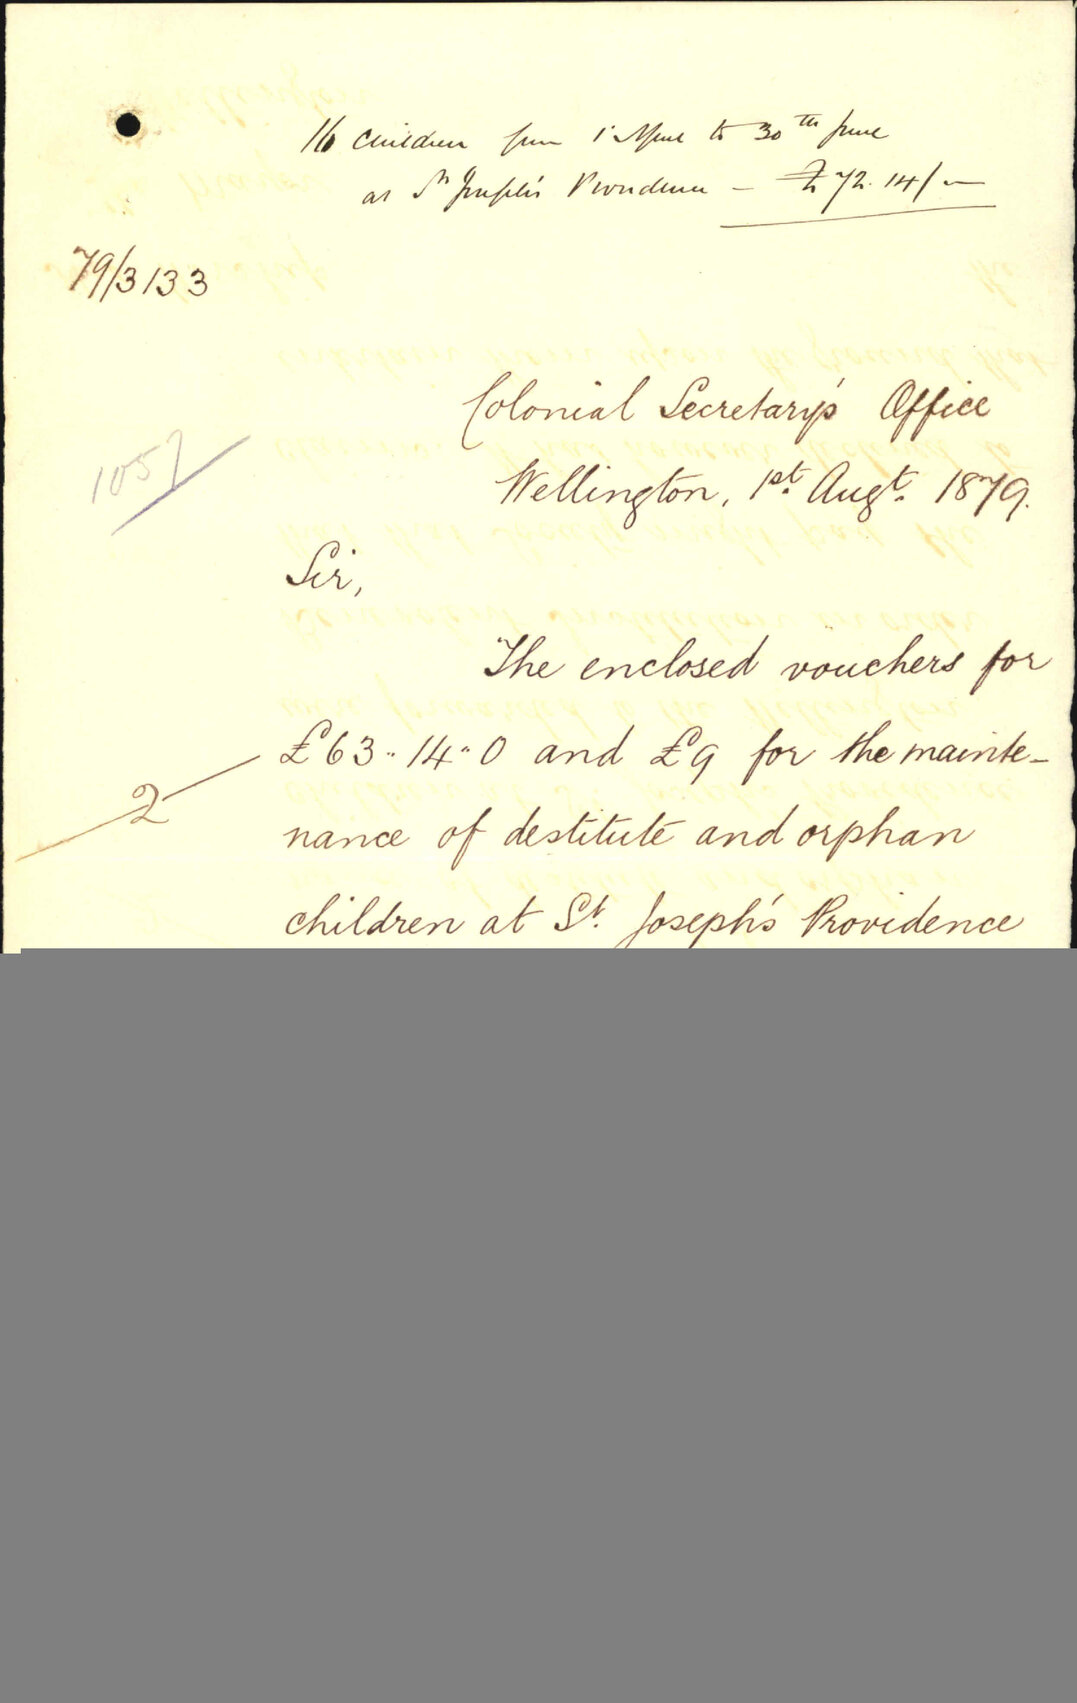 16 children from 1 April to 30th June
at St Joseph's Providence - £72.14/-
79/3133
Colonial Secretary's Office
1057
Wellington, 1st. Augt. 1879.
Sir,
The enclosed vouchers for
£63.. 14.. 0 and £9 for the mainte-
2
nance of destitute and orphan
children at St. Joseph's Providence